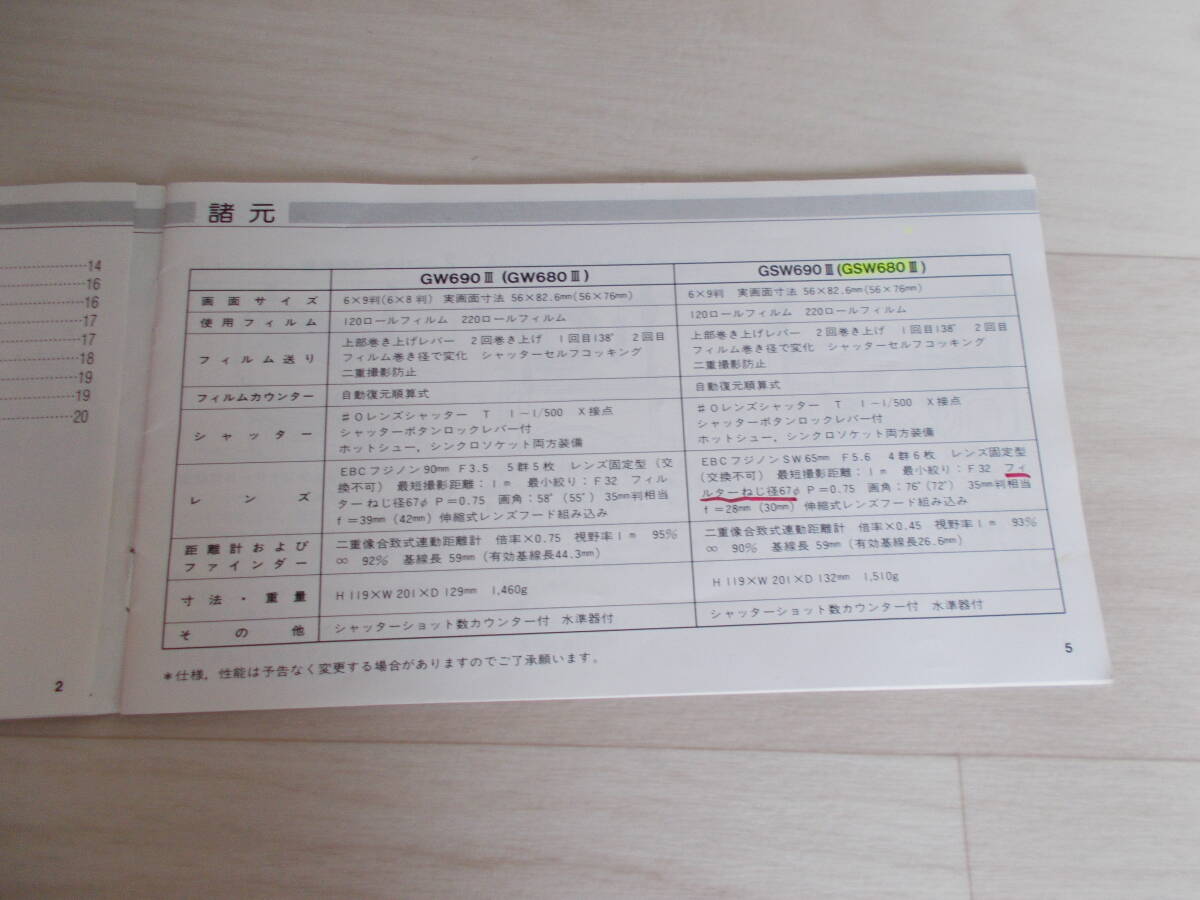 14
16
16
17
17
18
19
19
20
2
諸元
GW690Ⅲ (GW680Ⅲ)
GSW690Ⅲ(GSW680Ⅲ)
画面サイズ
6×9判(6×8判) 実画面寸法 56×82.6mm(56×76mm)
6×9判 実画面寸法 56×82.6mm(56×76mm)
使用フィルム
120ロールフィルム 220ロールフィルム
120ロールフィルム 220ロールフィルム
フィルム送り
上部巻き上げレバー 2回巻き上げ 1回目138° 2回目
フィルム巻き径で変化 シャッターセルフコッキング
二重撮影防止
上部巻き上げレバー 2回巻き上げ 1回目138° 2回目
フィルム巻き径で変化 シャッターセルフコッキング
二重撮影防止
フィルムカウンター
自動復元順算式
自動復元順算式
シャッター
#0レンズシャッター T 1~1/500 X接点
シャッターボタンロックレバー付
ホットシュー,シンクロソケット両方装備
#0レンズシャッター T 1~1/500 X接点
シャッターボタンロックレバー付
ホットシュー,シンクロソケット両方装備
レンズ
EBCフジノン90mm F3.5 5群5枚 レンズ固定型(交
換不可) 最短撮影距離:1m 最小絞り:F32 フィル
ターねじ径67φ P=0.75 画角:58°(55°) 35mm判相当
f=39mm(42mm)伸縮式レンズフード組み込み
EBCフジノンSW65mm F5.6 4群6枚 レンズ固定型
(交換不可) 最短撮影距離:1m 最小絞り:F32 フィ
ルターねじ径67φ P=0.75 画角:76°(72°) 35mm判相当
f=28mm(30mm)伸縮式レンズフード組み込み
距離計および
ファインダー
二重像合致式連動距離計 倍率×0.75 視野率1m 95%
∞ 92% 基線長 59mm(有効基線長44.3mm)
二重像合致式連動距離計 倍率×0.45 視野率1m 93%
∞ 90% 基線長 59mm(有効基線長26.6mm)
寸法・重量
H119×W201×D129mm 1,460g
H119×W201×D132mm 1,510g
その他
シャッターショット数カウンター付 水準器付
シャッターショット数カウンター付 水準器付
*仕様,性能は予告なく変更する場合がありますのでご了承願います。
5